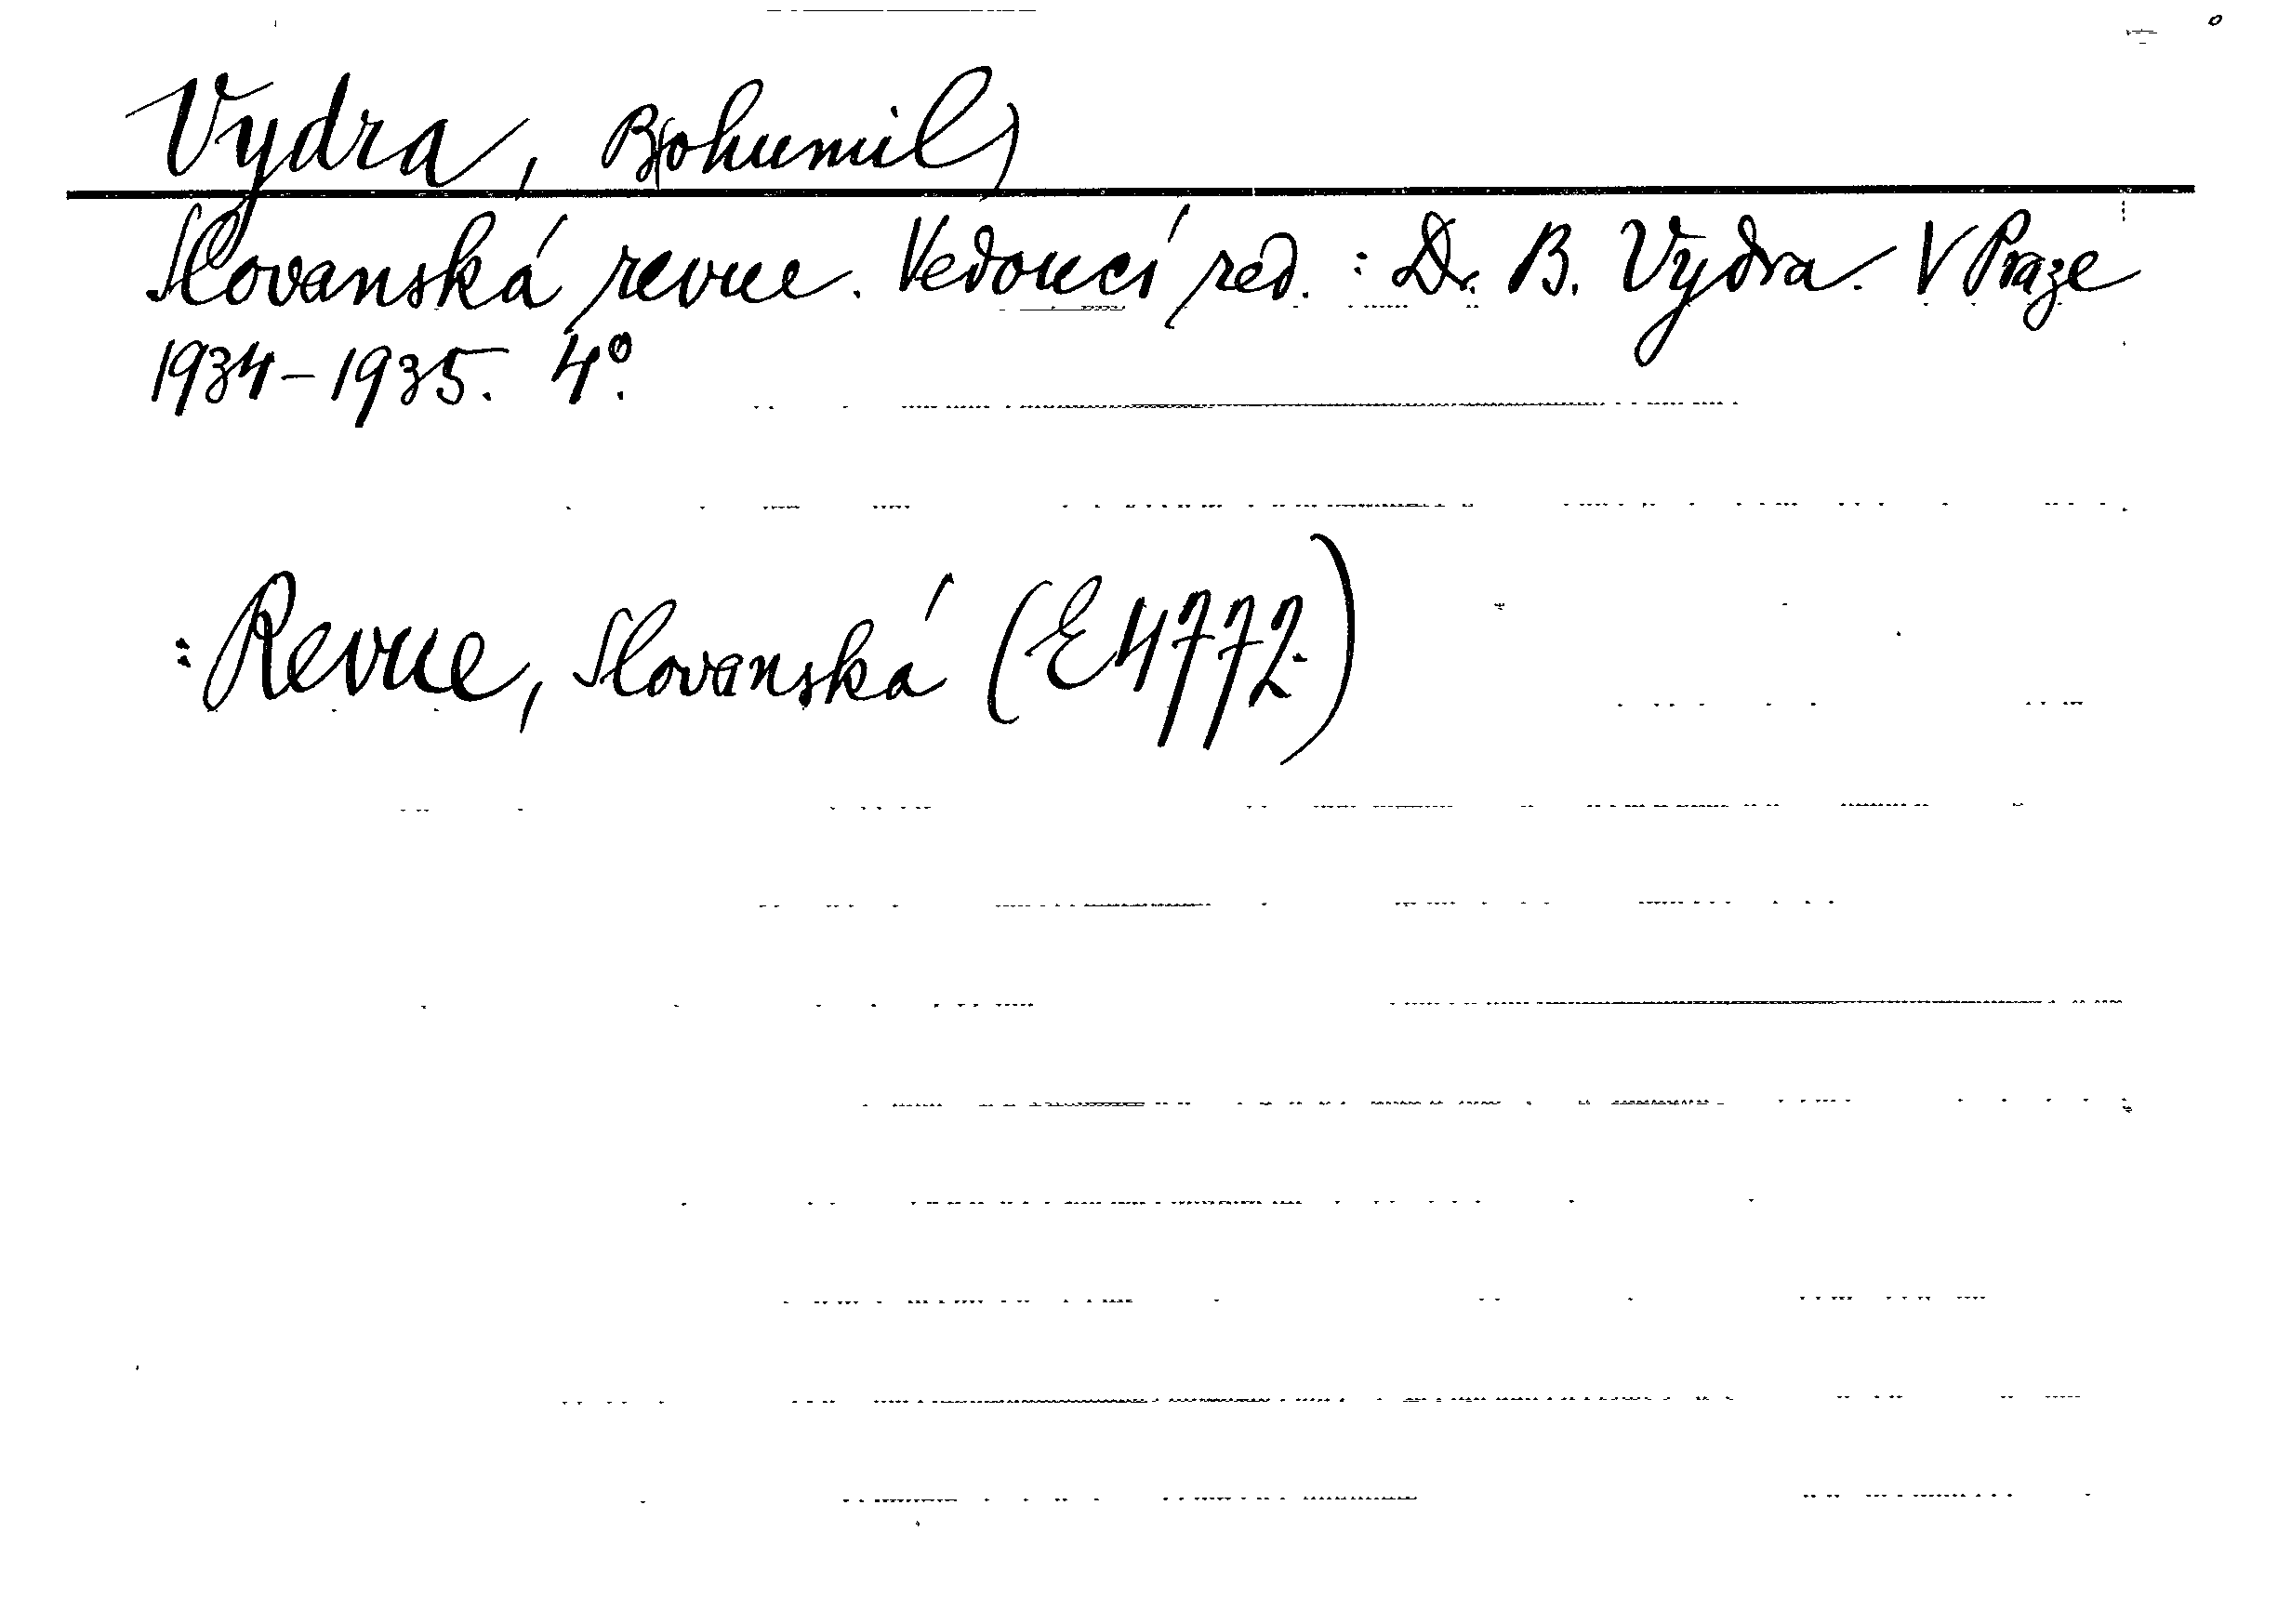 Vydra, B(ohumil)
Slovanská revue. Vedoucí red.: Dr. B. Vydra. V Praze
1934-1935. 4°.
: Revue, Slovanská (E 4772.)